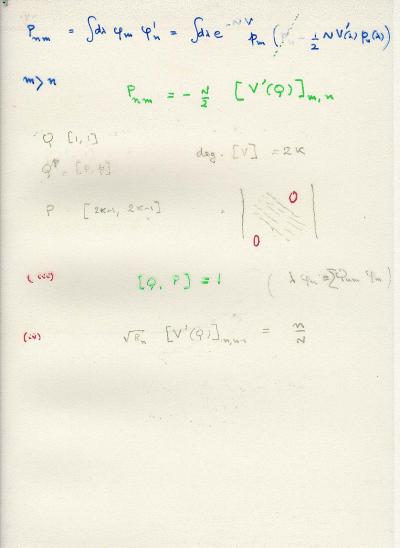 P_{nm} = ∫dλ φ_m φ'_n = ∫dλ e^{-NV} p_m (p'_n - 1/2 N V'(λ) p_n(λ))
m > n
P_{nm} = - N/2 [V'(Q)]_{m,n}
Q [1,1]
deg. [V] = 2K
Q^p = [p, p]
P [2K-1, 2K-1] = | 0 0 |
(iii) [Q, P] = 1 (λ φ_n = ΣQ_{nm} φ_m)
(iv) √R_n [V'(Q)]_{n,n-1} = n/N